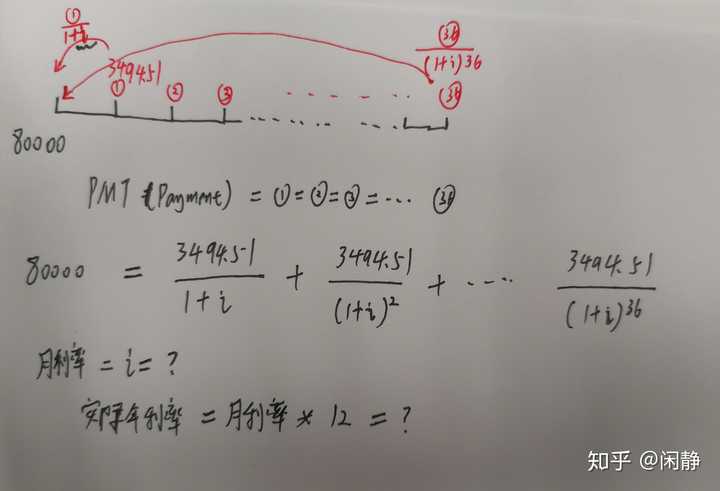 ① / 1+i
㊱ / (1+i)36
3494.51
① ② ③ ...... ㊱
80000
PMT (Payment) = ① = ② = ③ = ... ㊱
80000 = 3494.51 / 1+i + 3494.51 / (1+i)² + ... 3494.51 / (1+i)³⁶
月利率 = i = ?
实际年利率 = 月利率 * 12 = ?
知乎 @闲静